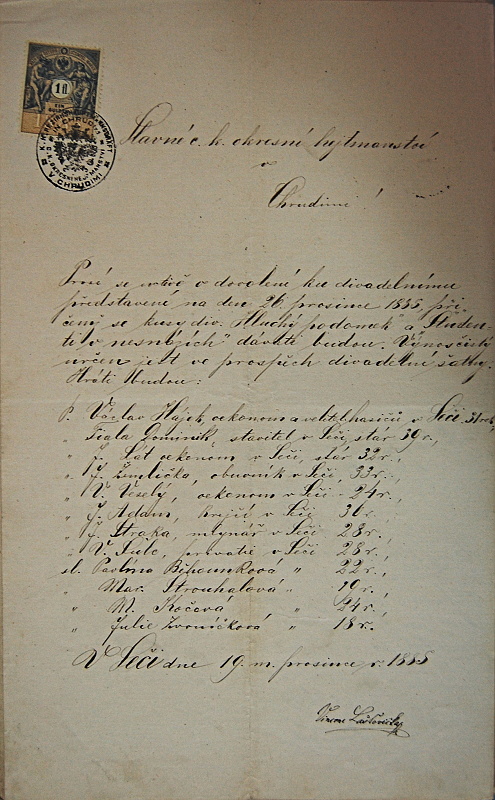 1 fl
V CHRUDIMI
Slavné c. k. okresní hejtmanství
v
Chrudimi!
Prosí se uctivě o dovolení ku divadelnímu
představení na den 26 prosince 1885, při
čemž se kusy div. "Hluchý podomek" a "Studen-
ti v nesnázích" dávati budou. Výnos čistý
určen jest ve prospěch divadelní šatny.
Hráti budou:
p. Václav Hájek, oekonom a velitel hasičů v Seči, 31 rok,
" Fiala Dominik, stavitel v Seči, stár 39 r.,
" J. Lát oekonom v Seči, stár 32 r.,
" J. Žemlička, obuvník v Seči, 33 r.,
" V. Veselý, oekonom v Seči - 24 r.,
" J. Adam, krejčí v Seči 36 r.,
" J. Straka, mlynář v Seči 28 r.,
" V. privatie v Seči 28 r.,
sl. Pavlína Běhounková " 22 r.,
" Mar. Strouhalová " 19 r.,
" M. Kočová " 24 r.,
" Julie Zvoníčková " 18 r.
V Seči dne 19. m. prosince r. 1885